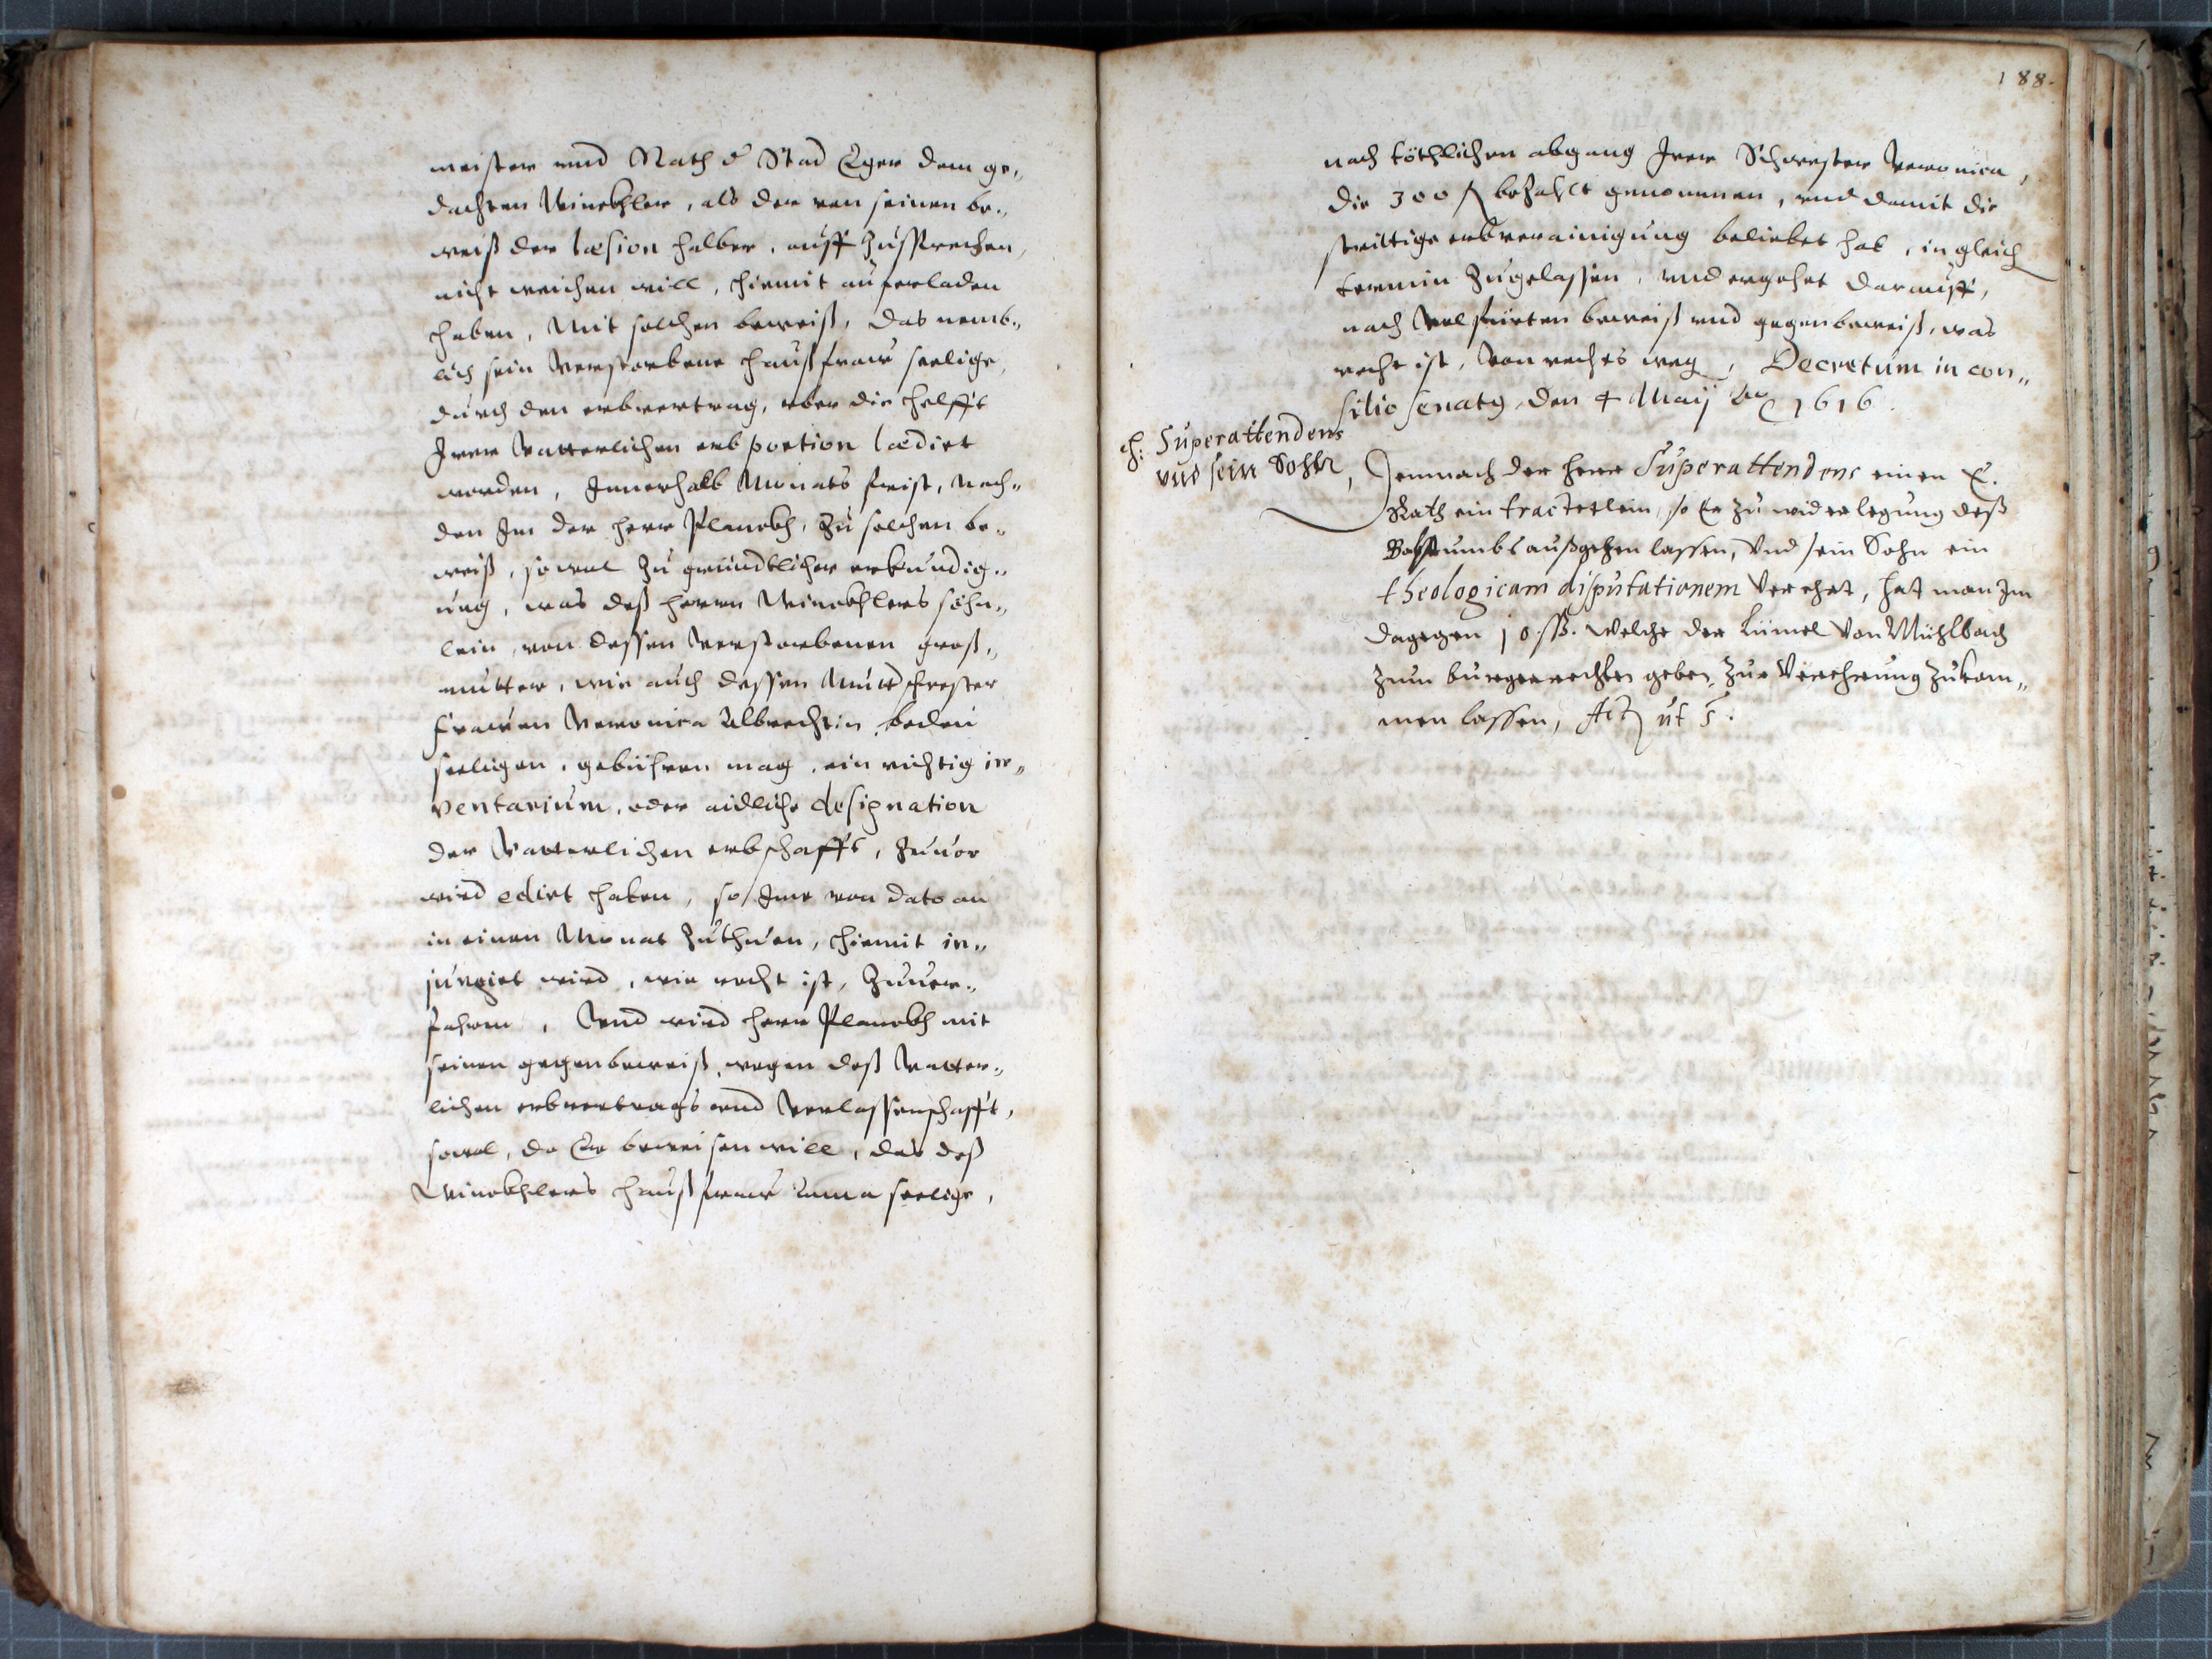 meister und Rath d Stad Eger dem ge„
dachten Winckhler, als der von seinen be„
weiß der læsion halber, auff Zusprechen,
nicht weichen will, hiemit auferladen
haben, Mit solchen beweiß, das nemb„
lich sein Verstorbene haußfraw seelige,
durch den erbvertrag, vber die helfft
Irer Vatterlichen erb portion lædirt
worden, Innerhalb Monats frist, nach„
den Im der herr Planckh, Zu solchen be„
weiß, sowol Zu gründtlicher erkundig„
ung, was deß herrn Winckhlers söhn„
lein, von dessen Verstorbenen groß„
mutter, wie auch dessen Mutterschwester
Frawen Veronica Albrechtin, beden
seeligen, gebühren mag, ein richtig in„
ventarium, oder aidliche designation
der Vatterlichen erbschafft, Zuuor
wird edirt haben, so Ime von dato an
in einen Monat Zuthuen, hiemit in„
jungirt wird, wie recht ist, Zuuer„
fahren, Vnd wird herr Planckh mit
seinen gegenbeweiß, wegen deß Vatter„
lichen erbvertrags vnd Verlassenschafft,
sowol, da Er beweisen will, das deß
Winckhlers haußfraw Anna seelige,
188.
nach töthlichen abgang Irer Schwester Veronica,
die 300 f bezahlt genommen, vnd damit die
strittige erbverainigung beliebet hat, in gleich
termin Zugelassen, vnd ergehet darauff,
nach Volfürten beweiß vnd gegenbeweiß, was
recht ist, Von rechts weg, Decretum in con„
silio senatq, den 4 Maij Ao 1616.
h: Superattendens
vnd sein Sohn,
Demnach der herr Superattendens einen E.
Rath ein tractetlein, so Er zu widerlegung deß
Babstumbs außgehen lassen, Vnd sein Sohn ein
theologicam disputationem Verehrt, hat man Im
dagegen 10 ß. Welche der Lümel Von Mühlbach
zum burgerrechten geben, zur Verehrung zukom„
men lassen, Act ut s.